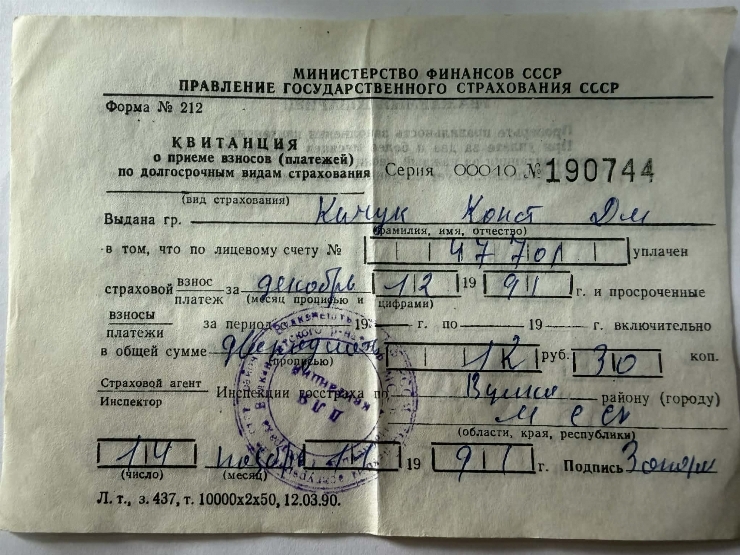 МИНИСТЕРСТВО ФИНАНСОВ СССР
ПРАВЛЕНИЕ ГОСУДАРСТВЕННОГО СТРАХОВАНИЯ СССР
Форма № 212
КВИТАНЦИЯ
о приеме взносов (платежей)
по долгосрочным видам страхования Серия 00010 № 190744
(вид страхования)
Выдана гр. Кичук Конст Дм
(фамилия, имя, отчество)
в том, что по лицевому счету № 47701 уплачен
страховой взнос платеж за декабрь 12 19 91 г. и просроченные
(месяц прописью и цифрами)
взносы платежи за период 19 — г. по — 19 — г. включительно
в общей сумме двенадцать 12 руб. 30 коп.
(прописью)
Страховой агент Инспектор Инспекции госстраха по району (городу)
М ССР
(области, края, республики)
14 11 19 91 г. Подпись
(число) (месяц)
Л. т., з. 437, т. 10000х2х50, 12.03.90.